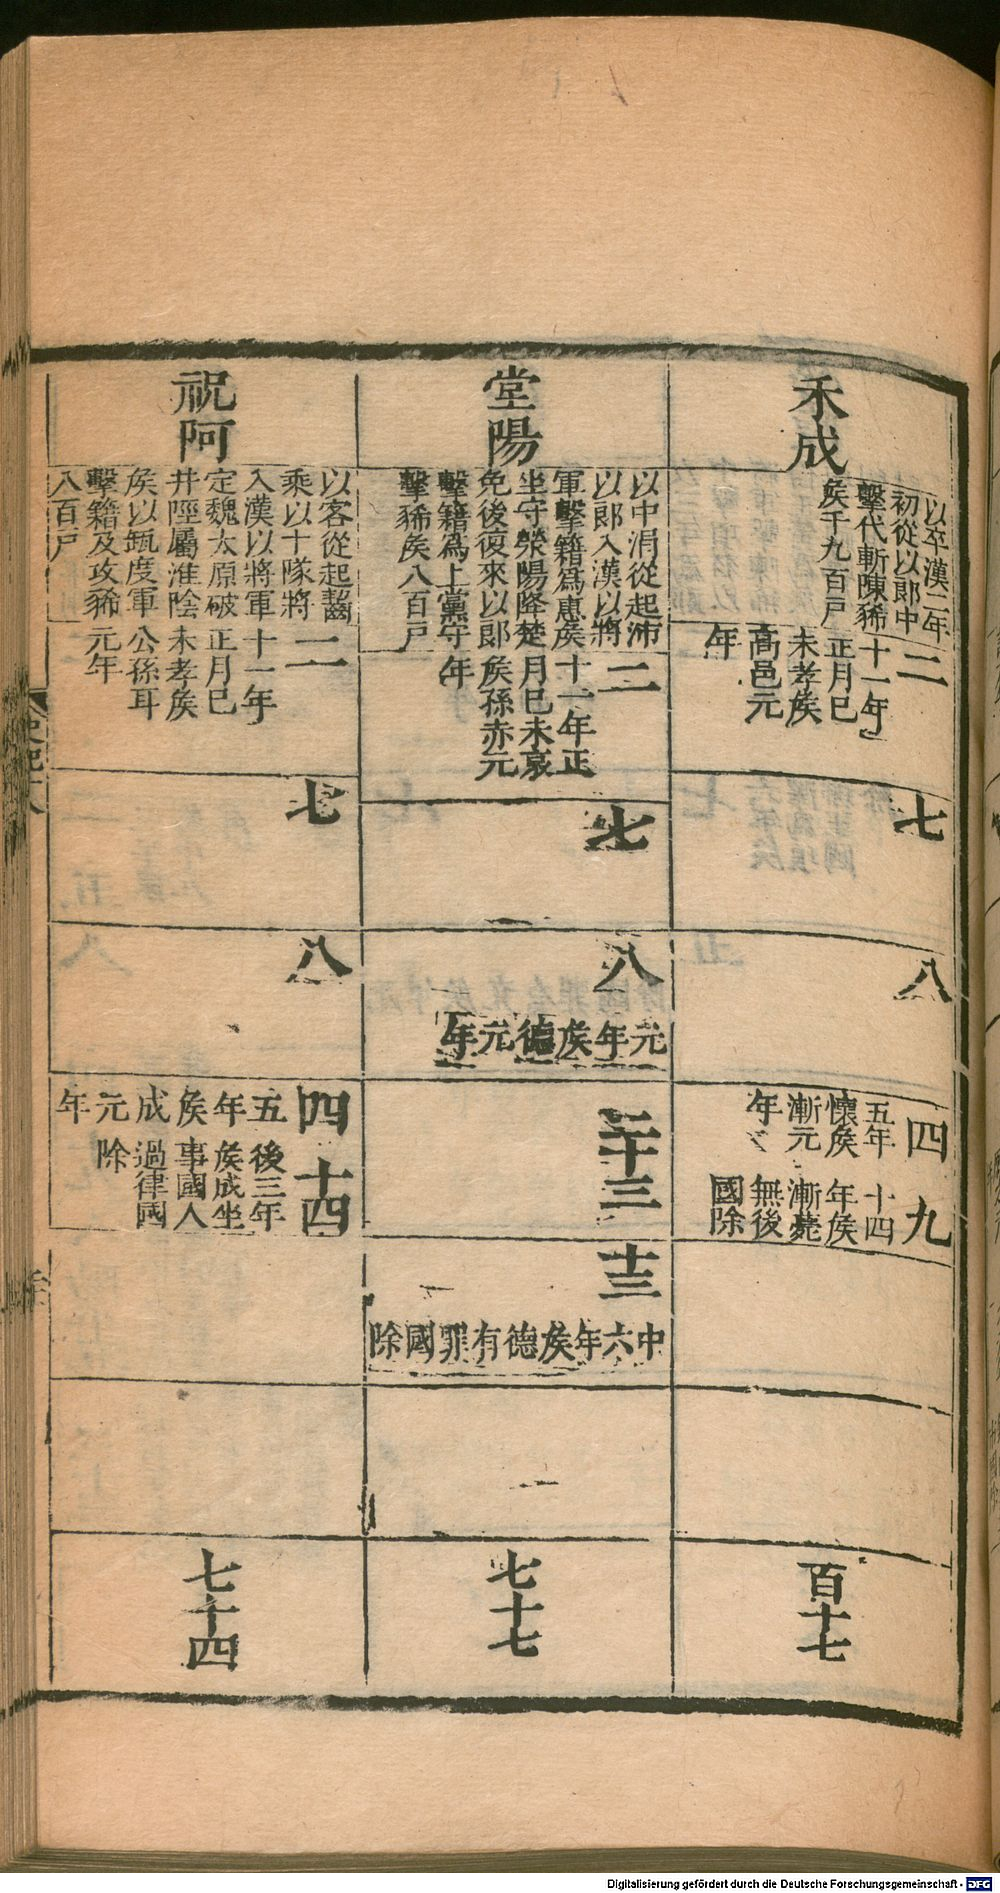 禾成
以卒漢二年
初從以郎中
擊代斬陳豨
侯千九百戶
二
十一年
正月巳
未孝侯
高邑元
年
七
八
四
五年
懷侯
漸元
年
九
十四
年侯
漸薨
無後
國除
百十七
堂陽
以中涓從起沛
以郎入漢以將
軍擊籍爲惠侯
坐守滎陽降楚
免後復來以郎
擊籍爲上黨守
擊豨侯八百戶
二
十一年正
月巳未哀
侯孫赤元
年
七
八
元年侯德元年
二十三
十三
中六年侯德有罪國除
七十七
祝阿
以客從起齧
乘以十隊將
入漢以將軍
定魏太原破
井陘屬淮陰
侯以缻度軍
擊籍及攻豨
八百戶
二
十一年
正月巳
未孝侯
公孫耳
元年
七
八
四
五年侯成元年
十四
後三年
侯成坐
事國人
過律國
除
七十四
史記十八
Digitalisierung gefördert durch die Deutsche Forschungsgemeinschaft - DFG